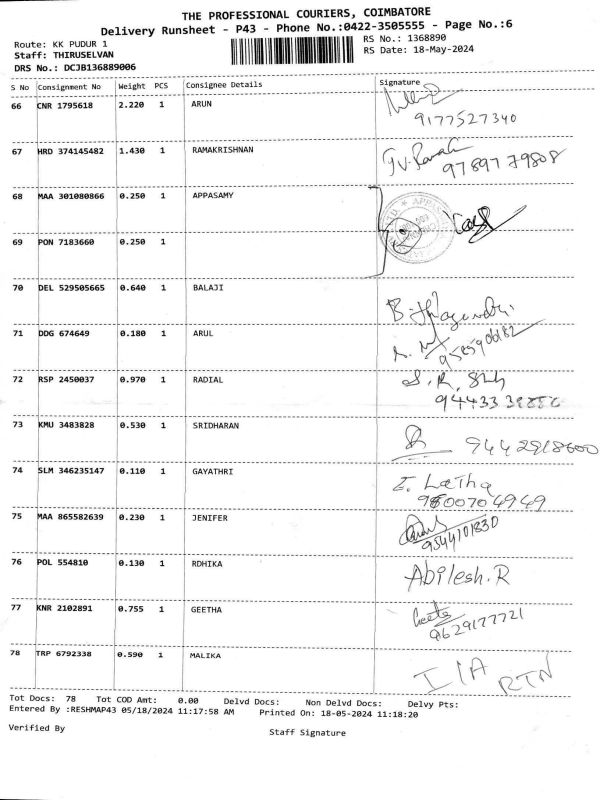 THE PROFESSIONAL COURIERS, COIMBATORE
Delivery Runsheet - P43 - Phone No.:0422-3505555 - Page No.:6
Route: KK PUDUR 1
RS No.: 1368890
Staff: THIRUSELVAN
RS Date: 18-May-2024
DRS No.: DCJB136889006
S No Consignment No Weight PCS Consignee Details Signature
66 CNR 1795618 2.220 1 ARUN
9177527340
67 HRD 374145482 1.430 1 RAMAKRISHNAN
9789779808
68 MAA 301080866 0.250 1 APPASAMY
69 PON 7183660 0.250 1
70 DEL 529505665 0.640 1 BALAJI
71 DDG 674649 0.180 1 ARUL
9585906182
72 RSP 2450037 0.970 1 RADIAL
73 KMU 3483828 0.530 1 SRIDHARAN
9442918600
74 SLM 346235147 0.110 1 GAYATHRI
E. Latha
9500704949
75 MAA 865582639 0.230 1 JENIFER
9544101830
76 POL 554810 0.130 1 RDHIKA
Abilesh.R
77 KNR 2102891 0.755 1 GEETHA
Geetha
9629177721
78 TRP 6792338 0.590 1 MALIKA
I/A RTN
Tot Docs: 78 Tot COD Amt: 0.00 Delvd Docs: Non Delvd Docs: Delvy Pts:
Entered By :RESHMAP43 05/18/2024 11:17:58 AM Printed On: 18-05-2024 11:18:20
Verified By
Staff Signature